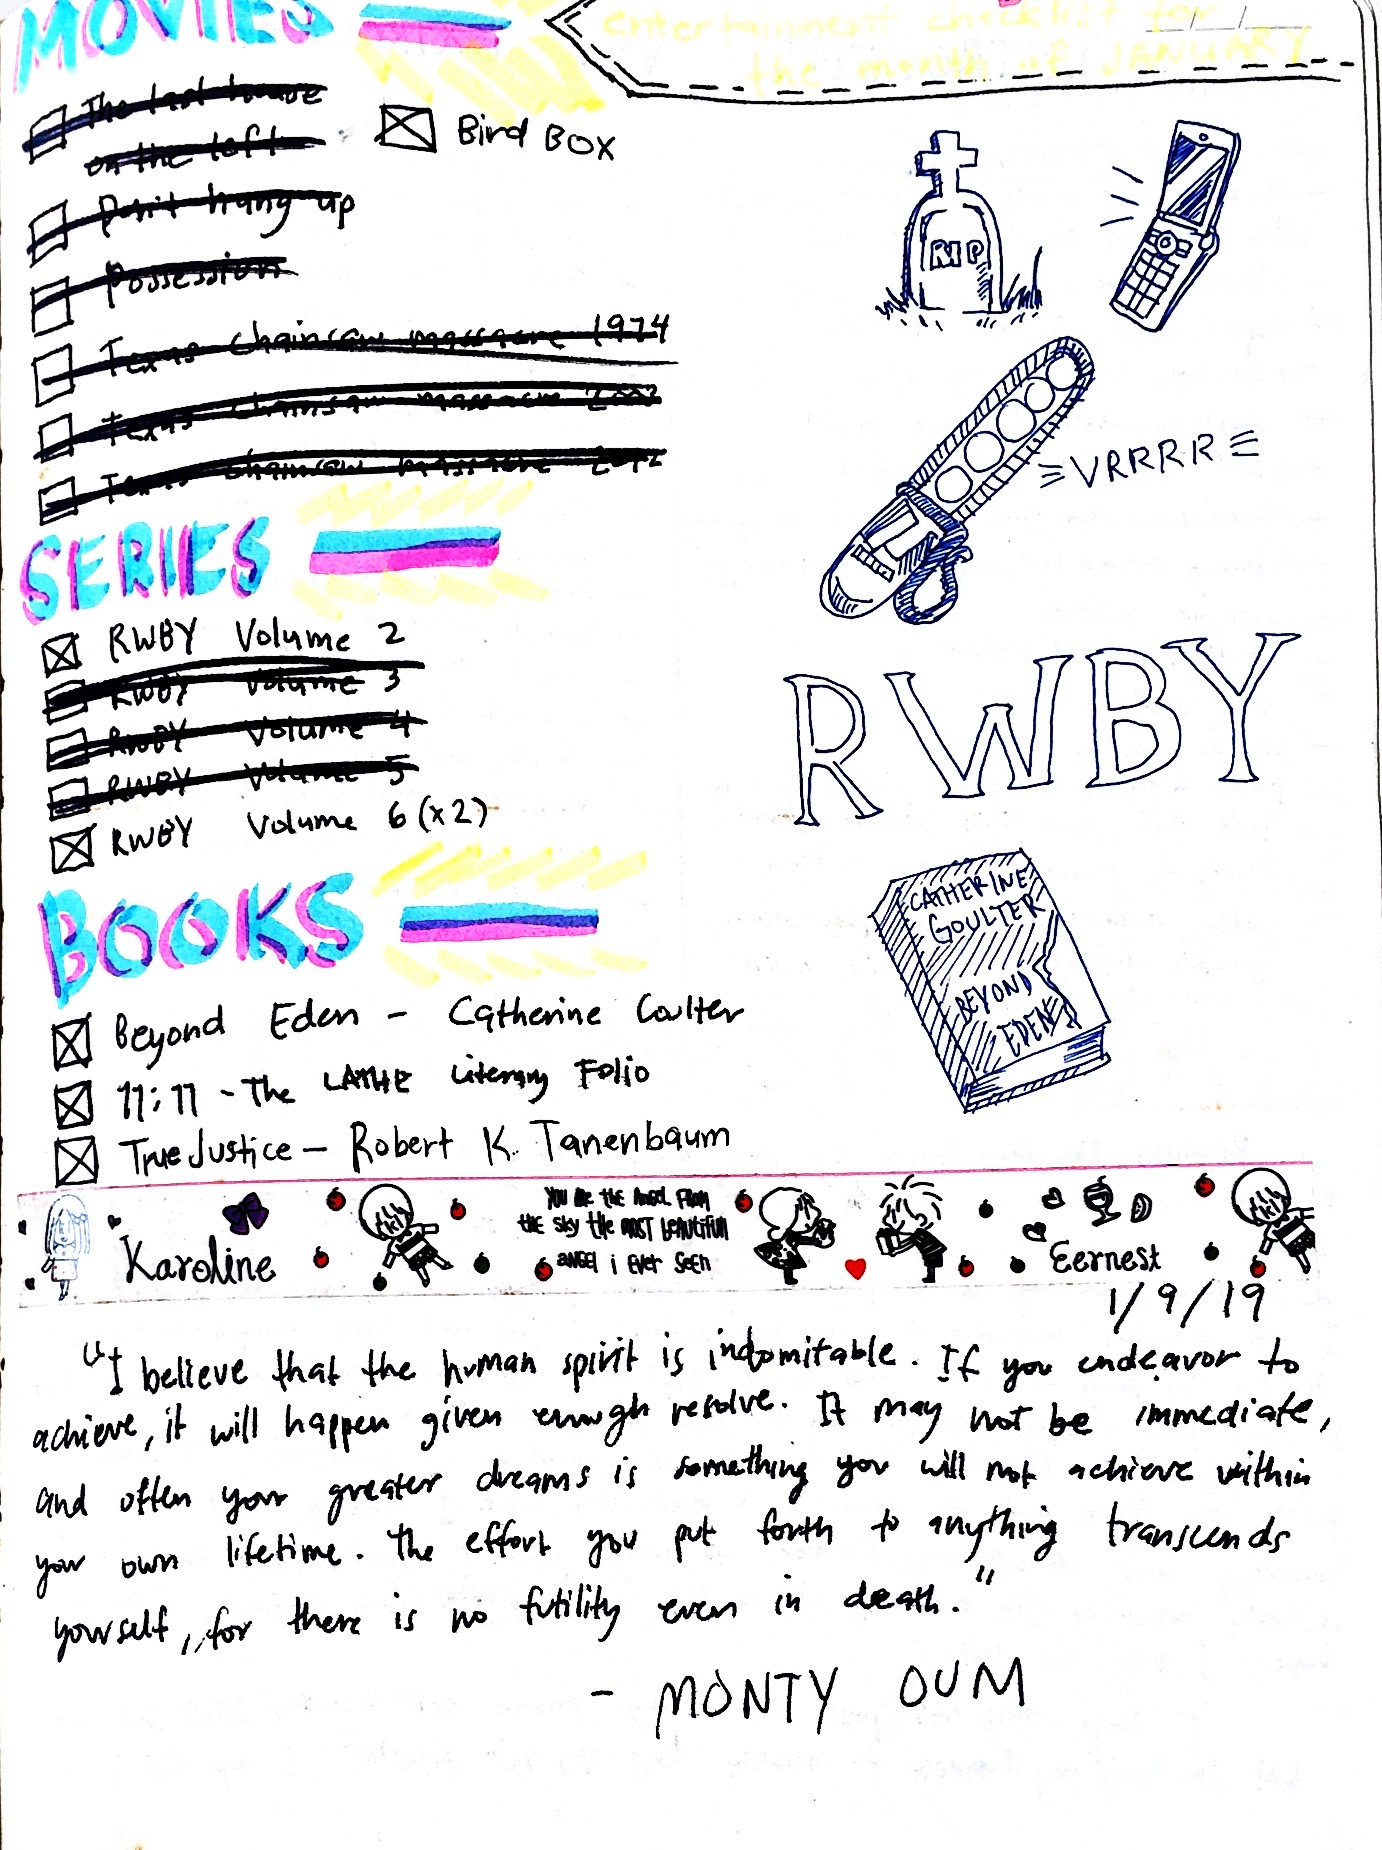 MOVIES
entertainment checklist for
the month of JANUARY
The last house
on the left
Bird BOX
Don't hang up
Possession
Texas chainsaw massacre 1974
Texas chainsaw massacre 2003
Texas chainsaw massacre
RIP
VRRRR
SERIES
RWBY Volume 2
RWBY Volume 3
RWBY Volume 4
RWBY Volume 5
RWBY Volume 6 (x2)
RWBY
BOOKS
Beyond Eden - Catherine Coulter
11:11 - The LATHE Literary Folio
True Justice - Robert K. Tanenbaum
CATHERINE
COULTER
BEYOND
EDEN
Karoline
YOU ARE THE ANGEL FROM
THE SKY THE MOST BEAUTIFUL
ANGEL i EVER SEEN
Eernest
1/9/19
"I believe that the human spirit is indomitable. If you endeavor to
achieve, it will happen given enough resolve. It may not be immediate,
and often your greater dreams is something you will not achieve within
your own lifetime. The effort you put forth to anything transcends
yourself, for there is no futility even in death."
- MONTY OUM